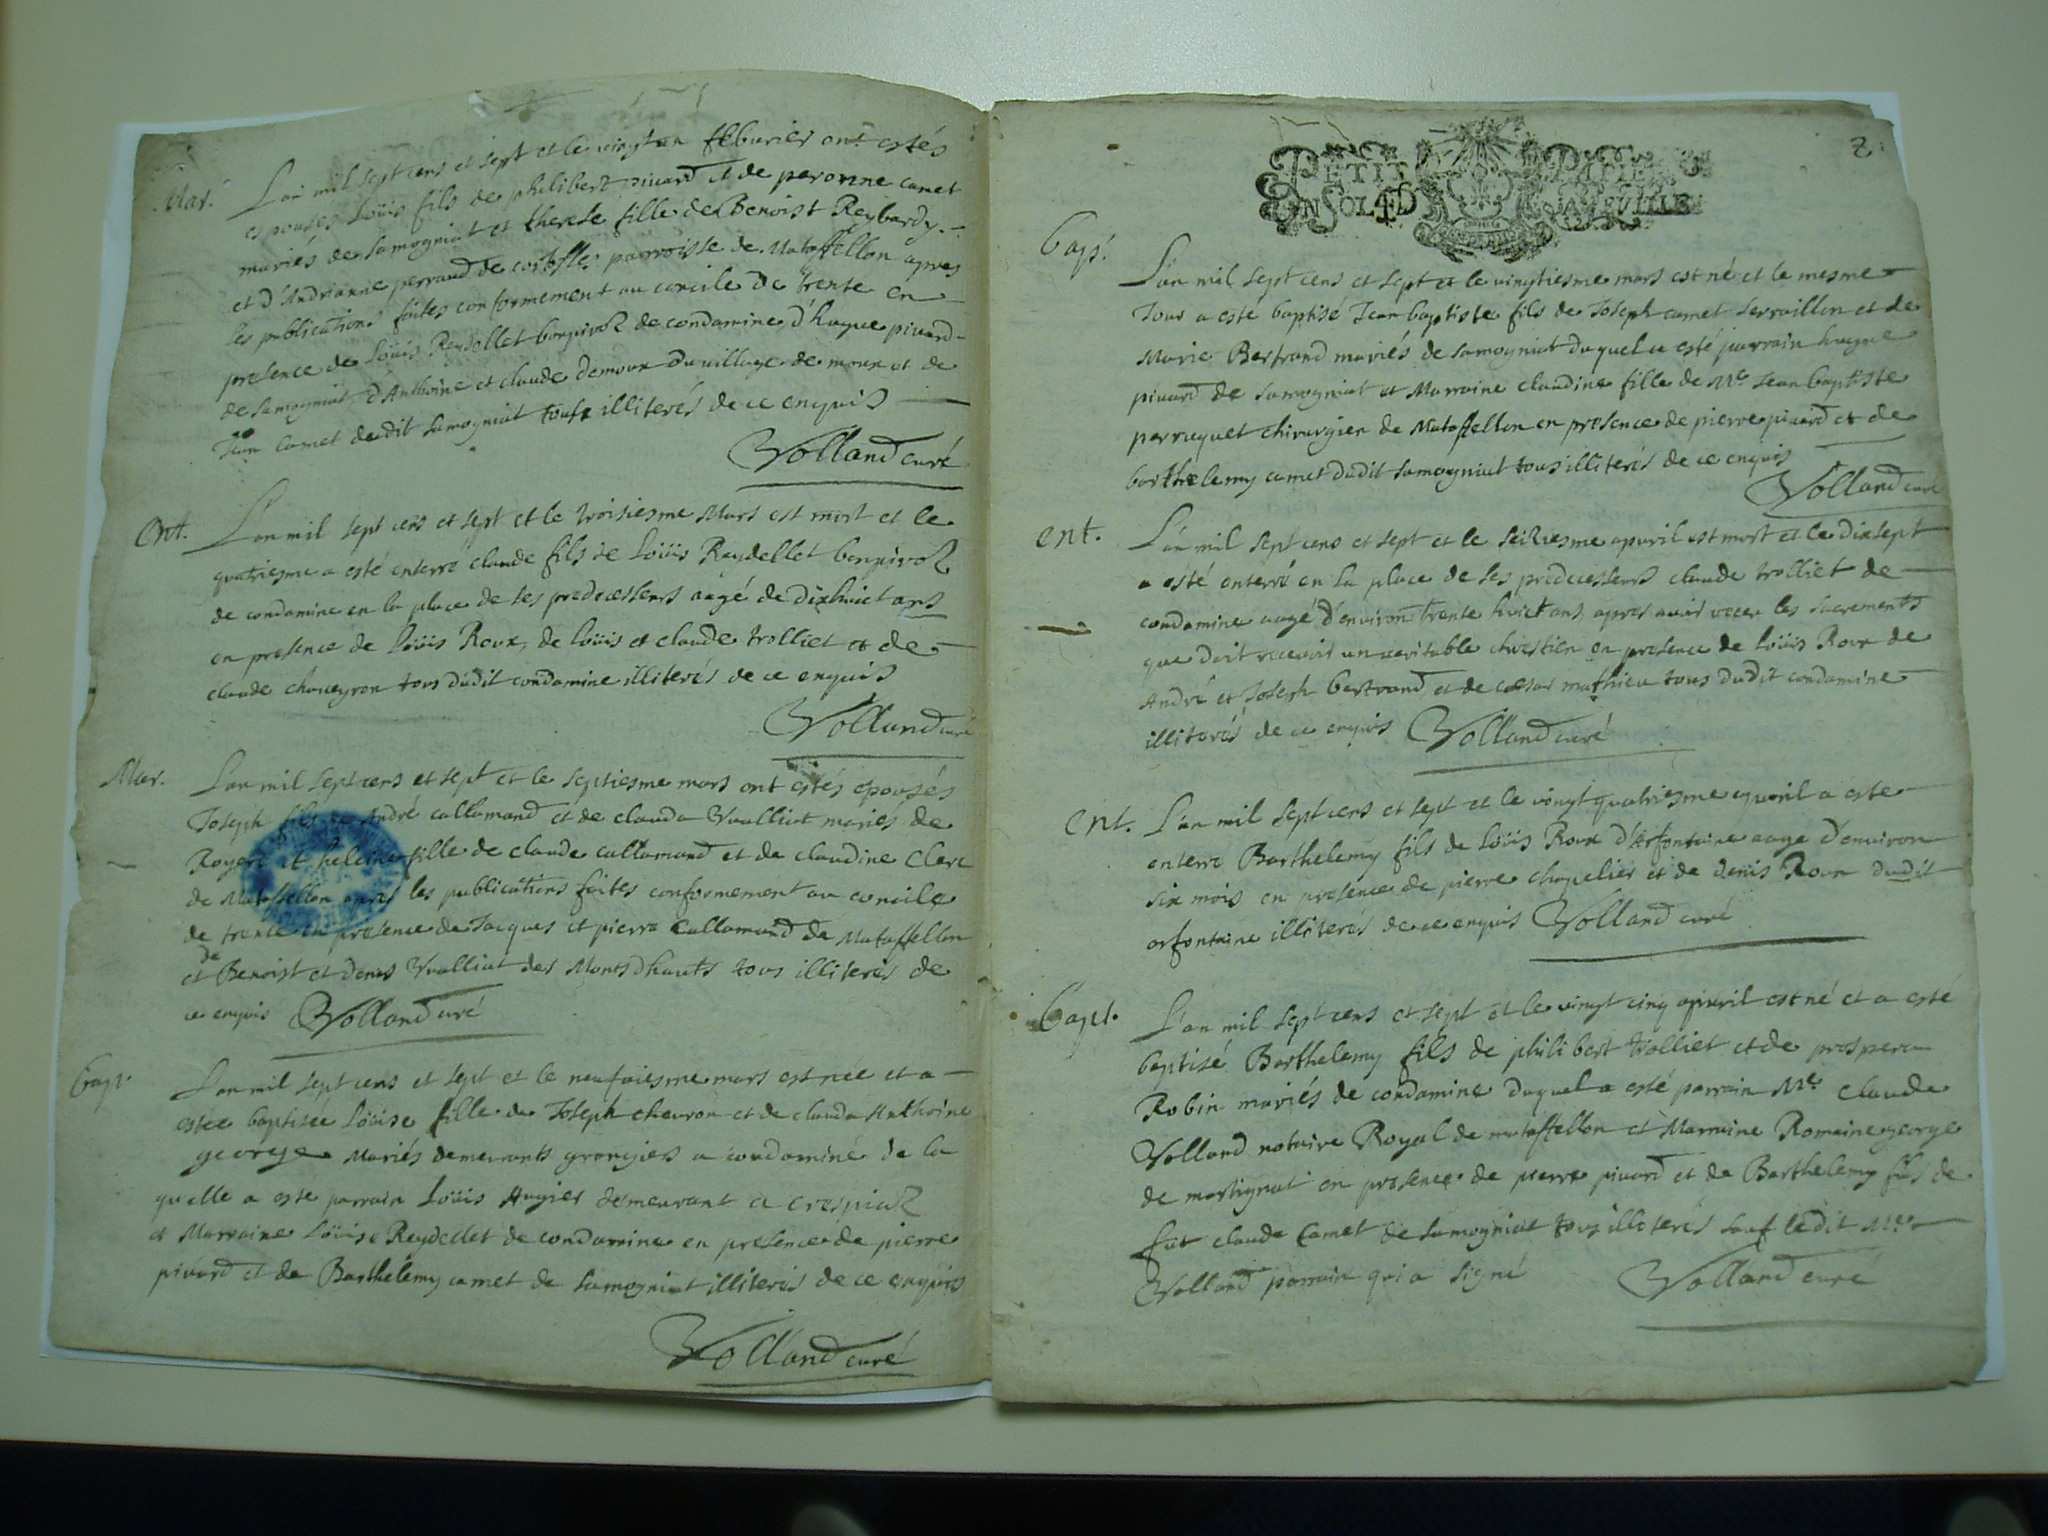 Mar.
L'an mil sept cens et sept et le vingt un feburier ont estés
espousés Loüis fils de philibert pivard et de peronne camet
mariés de samogniat et therese fille de Benoist Reybardy
et d'Andrianne perraud de corcelles parroisse de Mataffellon apres
les publications faites conformement au concile de trente en
presence de Loüis Reydellet bonpivoz de condamine, d'hugue pivard
de samogniat, d'Anthoine et claude demoux du village de moux et de
Jean camet dudit samogniat tous illiterés de ce enquis
Volland curé
Ent.
L'an mil sept cens et sept et le troisiesme Mars est mort et le
quatriesme a esté enterré claude fils de Loüis Reydellet bonpivoz
de condamine en la place de ses predecesseurs aagé de dixhuict ans
en presence de Loüis Roux, de loüis et claude trolliet et de
claude chaveyron tous dudit condamine illiterés de ce enquis
Volland curé
Mar.
L'an mil sept cens et sept et le septiesme mars ont estés epousés
Joseph fils de André callamand et de clauda Vuailliat mariés de
et heleine fille de claude callamand et de claudine Clerc
de Mataffellon apres les publications faites conformement au concile
de trente en presence de Jacques et pierre Callamand de Mataffellon
et de Benoist et denis Vuailliat des Monts d'hauts tous illiterés de
ce enquis Volland curé
bapt.
L'an mil sept cens et sept et le neufviesme mars est née et a
estée baptisée Loüise fille de Joseph chevron et de clauda Anthoine
george Mariés demeurants grangiers a condamine de la
quelle a esté parrain Loüis Augier demeurant a crespiaz
et Marraine Loüise Reydellet de condamine en presence de pierre
pivard et de Barthelemy camet de samogniat illiterés de ce enquis
Volland curé
PETIT PAPIER
UN SOL 4 D LA FEUILLE
2.
bapt.
L'an mil sept cens et sept et le vingtiesme mars est né et le mesme
Jour a esté baptisé Jean baptiste fils de Joseph camet servaillon et de
Marie Bertrand mariés de samogniat duquel a esté parrain hugue
pivard de samogniat et Marraine claudine fille de Me Jean baptiste
perruquet chirurgien de Mataffellon en presence de pierre pivard et de
barthelemy camet dudit samogniat tous illiterés de ce enquis
Volland curé
Ent.
L'an mil sept cens et sept et le seiziesme apvril est mort et le dixsept
a esté enterré en la place de ses predecesseurs claude trolliet de
condamine aagé d'environ trente huict ans apres avoir receu les sacrements
que doit recevoir un veritable chrestien en presence de Loüis Roux de
André et Joseph bertrand et de cæsar mathieu tous dudit condamine
illiterés de ce enquis Volland curé
Ent.
L'an mil sept cens et sept et le vingt quatriesme apvril a esté
enterré Barthelemy fils de Loüis Roux d'orfontaine aagé d'environ
six mois en presence de pierre chapelier et de denis Roux dudit
orfontaine illiterés de ce enquis Volland curé
bapt.
L'an mil sept cens et sept et le vingt cinq apvril est né et a esté
baptisé Barthelemy fils de philibert trolliet et de prospera
Robin mariés de condamine duquel a esté parrain Me Claude
Volland notaire Royal de mataffellon et Marraine Romaine george
de martignat en presence de pierre pivard et de Barthelemy fils de
fut claude Camet de samogniat tous illiterés sauf ledit Me
Volland parrain qui a signé Volland curé